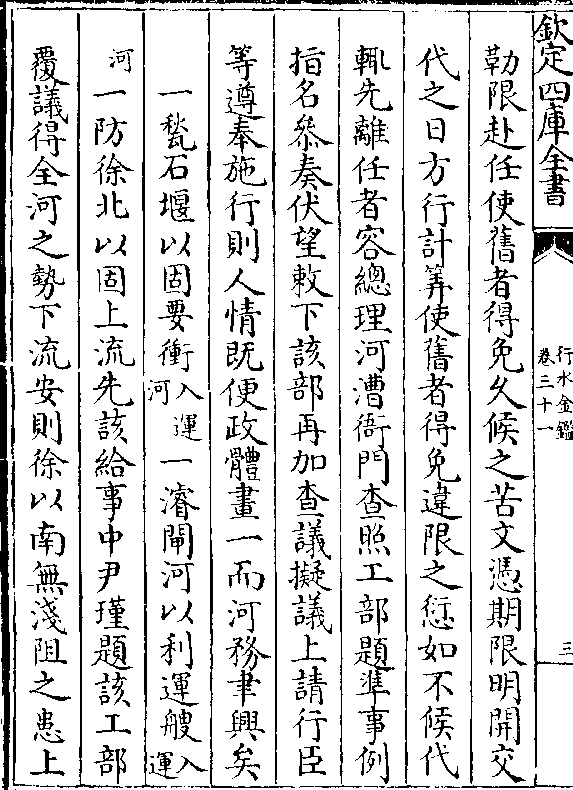 欽定四庫全書
行水金鑑
卷三十一
三
勒限赴任使舊者得免久候之苦文憑期限明開交
代之日方行計筭使舊者得免違限之愆如不候代
輒先離任者容總理河漕衙門查照工部題準事例
指名叅奏伏望敕下該部再加查議擬議上請行臣
等遵奉施行則人情既便政體畫一而河務聿興矣
一甃石堰以固要衝入運河一濬閘河以利運艘入運
河一防徐北以固上流先該給事中尹瑾題該工部
覆議得全河之勢下流安則徐以南無淺阻之患上